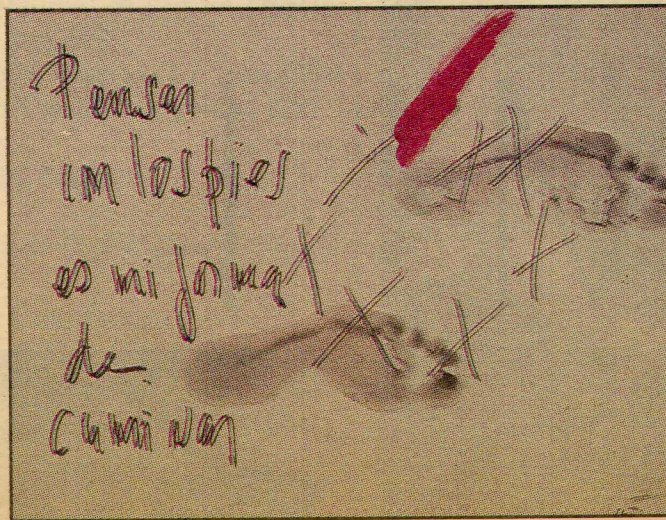 Pensar
en los pies
es mi forma
de
caminar